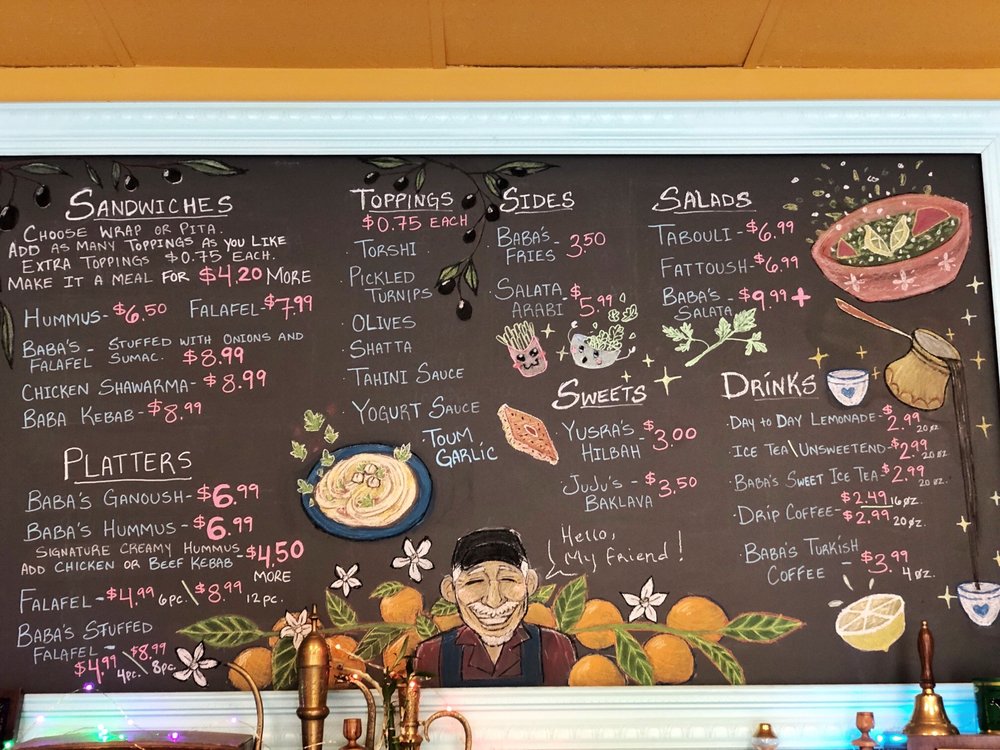 SANDWICHES
CHOOSE WRAP OR PITA.
ADD AS MANY TOPPINGS AS YOU LIKE
EXTRA TOPPINGS $0.75 EACH.
MAKE IT A MEAL FOR $4.20 MORE
HUMMUS- $6.50 FALAFEL-$7.99
BABA'S - STUFFED WITH ONIONS AND
FALAFEL SUMAC. $8.99
CHICKEN SHAWARMA- $8.99
BABA KEBAB-$8.99
PLATTERS
BABA'S GANOUSH-$6.99
BABA'S HUMMUS-$6.99
SIGNATURE CREAMY HUMMUS
ADD CHICKEN OR BEEF KEBAB-$4.50
MORE
FALAFEL-$4.99 6pc.\$8.99 12pc.
BABA'S STUFFED
FALAFEL-
$4.99 4pc.\$8.99 8pc.
TOPPINGS
$0.75 EACH
· TORSHI
· PICKLED
TURNIPS
· OLIVES
· SHATTA
· TAHINI SAUCE
· YOGURT SAUCE
· TOUM
GARLIC
SIDES
BABA'S - 3.50
FRIES
· SALATA - $5.99
ARABI
SALADS
TABOULI-$6.99
FATTOUSH-$6.99
BABA'S - $9.99+
SALATA
SWEETS
YUSRA'S - $3.00
HILBAH
· JUJU'S - $3.50
BAKLAVA
DRINKS
·DAY TO DAY LEMONADE-$2.99 20oz.
·ICE TEA\UNSWEETEND-$2.99 20oz.
·BABA'S SWEET ICE TEA-$2.99 20oz.
·DRIP COFFEE-$2.49 16oz.
$2.99 20oz.
·BABA'S TURKISH
COFFEE - $3.99 4oz.
Hello,
My friend!